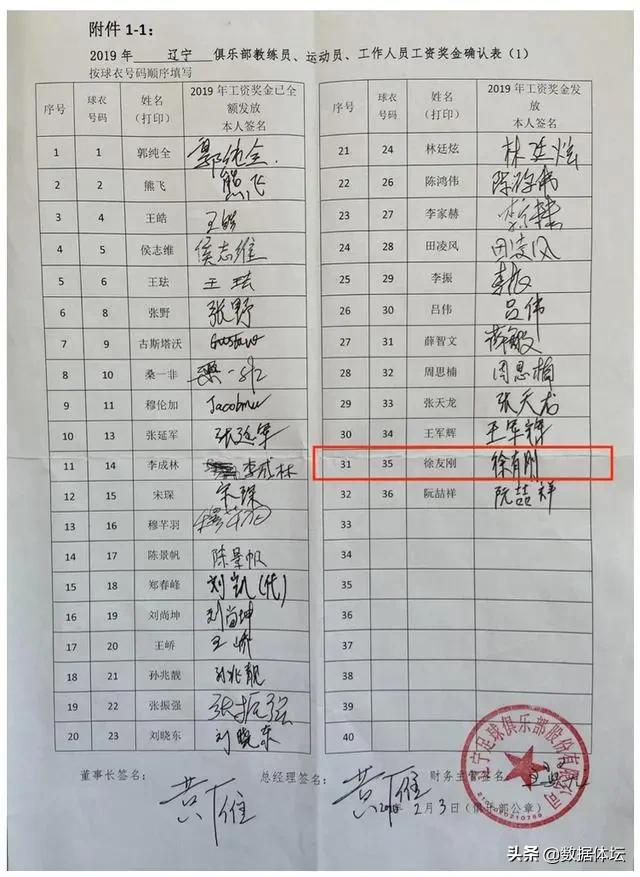 附件 1-1:
2019 年 辽宁 俱乐部教练员、运动员、工作人员工资奖金确认表（1）
按球衣号码顺序填写
序号 球衣号码 姓名（打印） 2019 年工资奖金已全额发放 本人签名
1 1 郭纯全 郭纯全
2 2 熊飞 熊飞
3 4 王皓 王皓
4 5 侯志维 侯志维
5 6 王珐 王珐
6 8 张野 张野
7 9 古斯塔沃 Gustavo
8 10 桑一非 桑一非
9 11 穆伦加 Jacobmu
10 13 张延军 张延军
11 14 李成林 李成林
12 15 宋琛 宋琛
13 16 穆芊羽
14 17 陈景帆 陈景帆
15 18 郑春峰 刘凯(代)
16 19 刘尚坤 刘尚坤
17 20 王峤 王峤
18 21 孙兆靓 孙兆靓
19 22 张振强 张振强
20 23 刘晓东 刘晓东
序号 球衣号码 姓名（打印） 2019 年工资奖金发放 本人签名
21 24 林廷炫 林廷炫
22 26 陈鸿伟
23 27 李家赫
24 28 田凌风 田凌风
25 29 李振 李振
26 30 吕伟 吕伟
27 31 薛智文
28 32 周思楠 周思楠
29 33 张天龙 张天龙
30 34 王军辉 王军辉
31 35 徐友刚 徐有刚
32 36 阮喆祥 阮喆祥
33
34
35
36
37
38
39
40
董事长签名： 总经理签名： 财务主管签名：
黄雁 黄雁
2月3日（俱乐部公章）
辽宁足球俱乐部股份有限公司
头条 @数据体坛